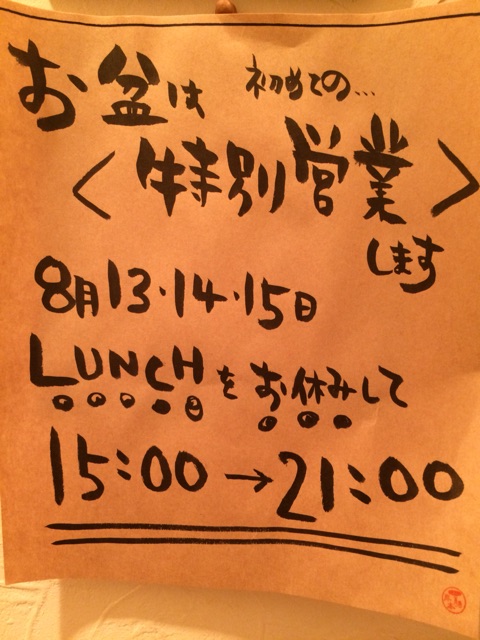 お盆は 初めての...
<特別営業>
します
8月13・14・15日
LUNCHをお休みして
15:00→21:00